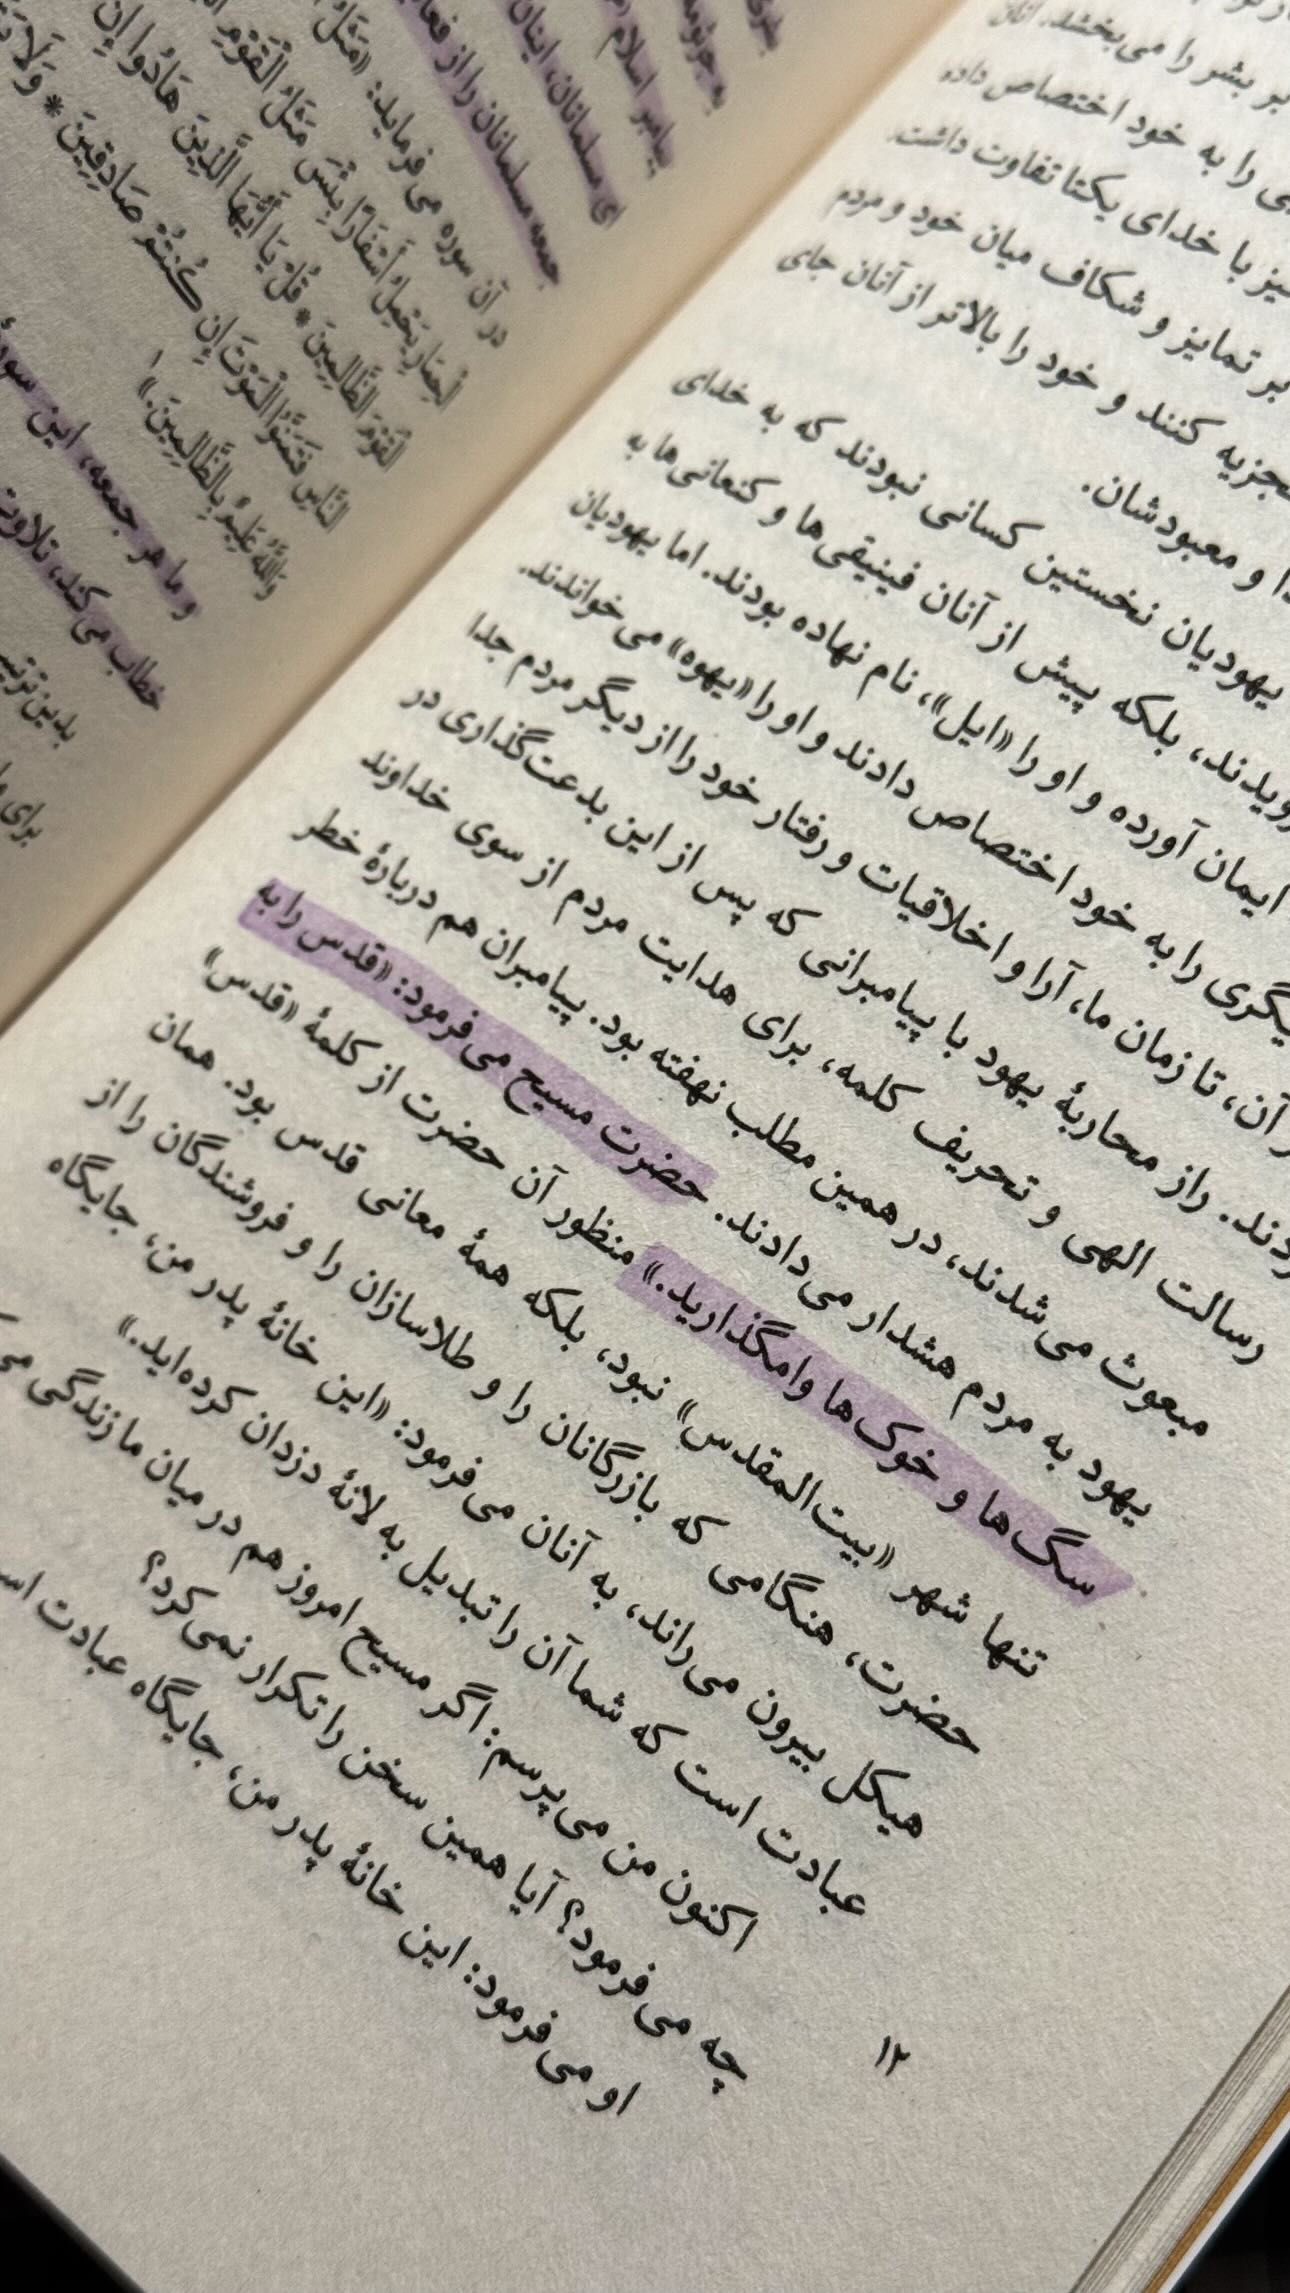 بر بشر را می‌بخشد. آنان
را به خود اختصاص داده
با خدای یکتا تفاوت داشت.
بر تمایز و شکاف میان خود و مردم
کنند و خود را بالاتر از آنان جای
و معبودشان.
یهودیان نخستین کسانی نبودند که به خدای
بلکه پیش از آنان فینیقی‌ها و کنعانی‌ها به
ایمان آورده و او را «ایل»، نام نهاده بودند. اما یهودیان
را به خود اختصاص دادند و او را «یهوه» می‌خواندند.
آن، تا زمان ما، آرا و اخلاقیات و رفتار خود را از دیگر مردم جدا
راز محاربهٔ یهود با پیامبرانی که پس از این بدعت‌گذاری در
رسالت الهی و تحریف کلمه، برای هدایت مردم از سوی خداوند
مبعوث می‌شدند، در همین مطلب نهفته بود. پیامبران هم دربارهٔ خطر
یهود به مردم هشدار می‌دادند. حضرت مسیح می‌فرمود: «قدس را به
سگ‌ها و خوک‌ها وامگذارید.» منظور آن حضرت از کلمهٔ «قدس»
تنها شهر «بیت‌المقدس» نبود، بلکه همهٔ معانی قدس بود. همان
حضرت، هنگامی که بازرگانان را و طلاسازان را و فروشندگان را از
هیکل بیرون می‌راند، به آنان می‌فرمود: «این خانهٔ پدر من، جایگاه
عبادت است که شما آن را تبدیل به لانهٔ دزدان کرده‌اید.»
اکنون من می‌پرسم: اگر مسیح امروز هم در میان ما زندگی
چه می‌فرمود؟ آیا همین سخن را تکرار نمی‌کرد؟
او می‌فرمود: این خانهٔ پدر من، جایگاه عبادت
۱۲
پیامبر اسلام
ای مسلمانان، اینان
جمعه مسلمانان را از
در آن سوره می‌فرماید: «مَثَلُ
یَحْمِلُ أَسْفَارًا بِئْسَ مَثَلُ الْقَوْمِ
الظَّالِمِینَ * قُلْ یَا أَیُّهَا الَّذِینَ هَادُوا إِن
النَّاسِ فَتَمَنَّوُا الْمَوْتَ إِن کُنتُمْ صَادِقِینَ * وَلَا
وَاللَّهُ عَلِیمٌ بِالظَّالِمِینَ.»۱
و ما هر جمعه، این
خطاب می‌کند، تلاوت
بدین
برای